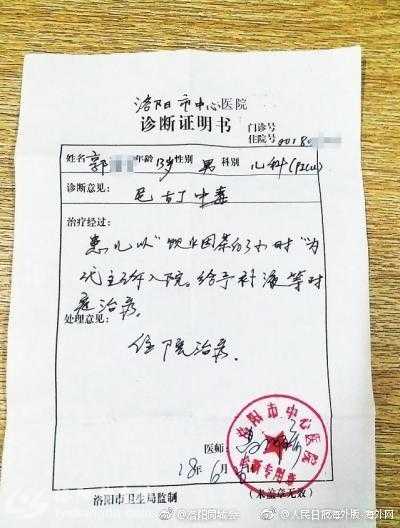 洛阳市中心医院
诊断证明书
门诊号
住院号 00180
姓名 郭 年龄 13岁 性别 男 科别 儿科(PICU)
诊断意见:
尼古丁中毒
治疗经过:
患儿以"饮业因茶的3小时"为
代主诉入院。给予补液等对
症治疗。
处理意见:
住院治疗.
医师:
18年6月
洛阳市中心医院
诊断专用章
洛阳市卫生局监制
(未盖章无效)
@洛阳同城会
@人民日报海外版-海外网